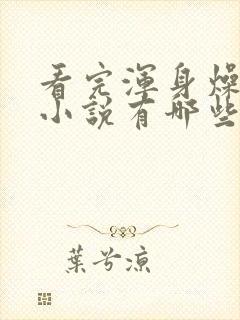 看完渾身燥
小說有哪些
葉兮涼